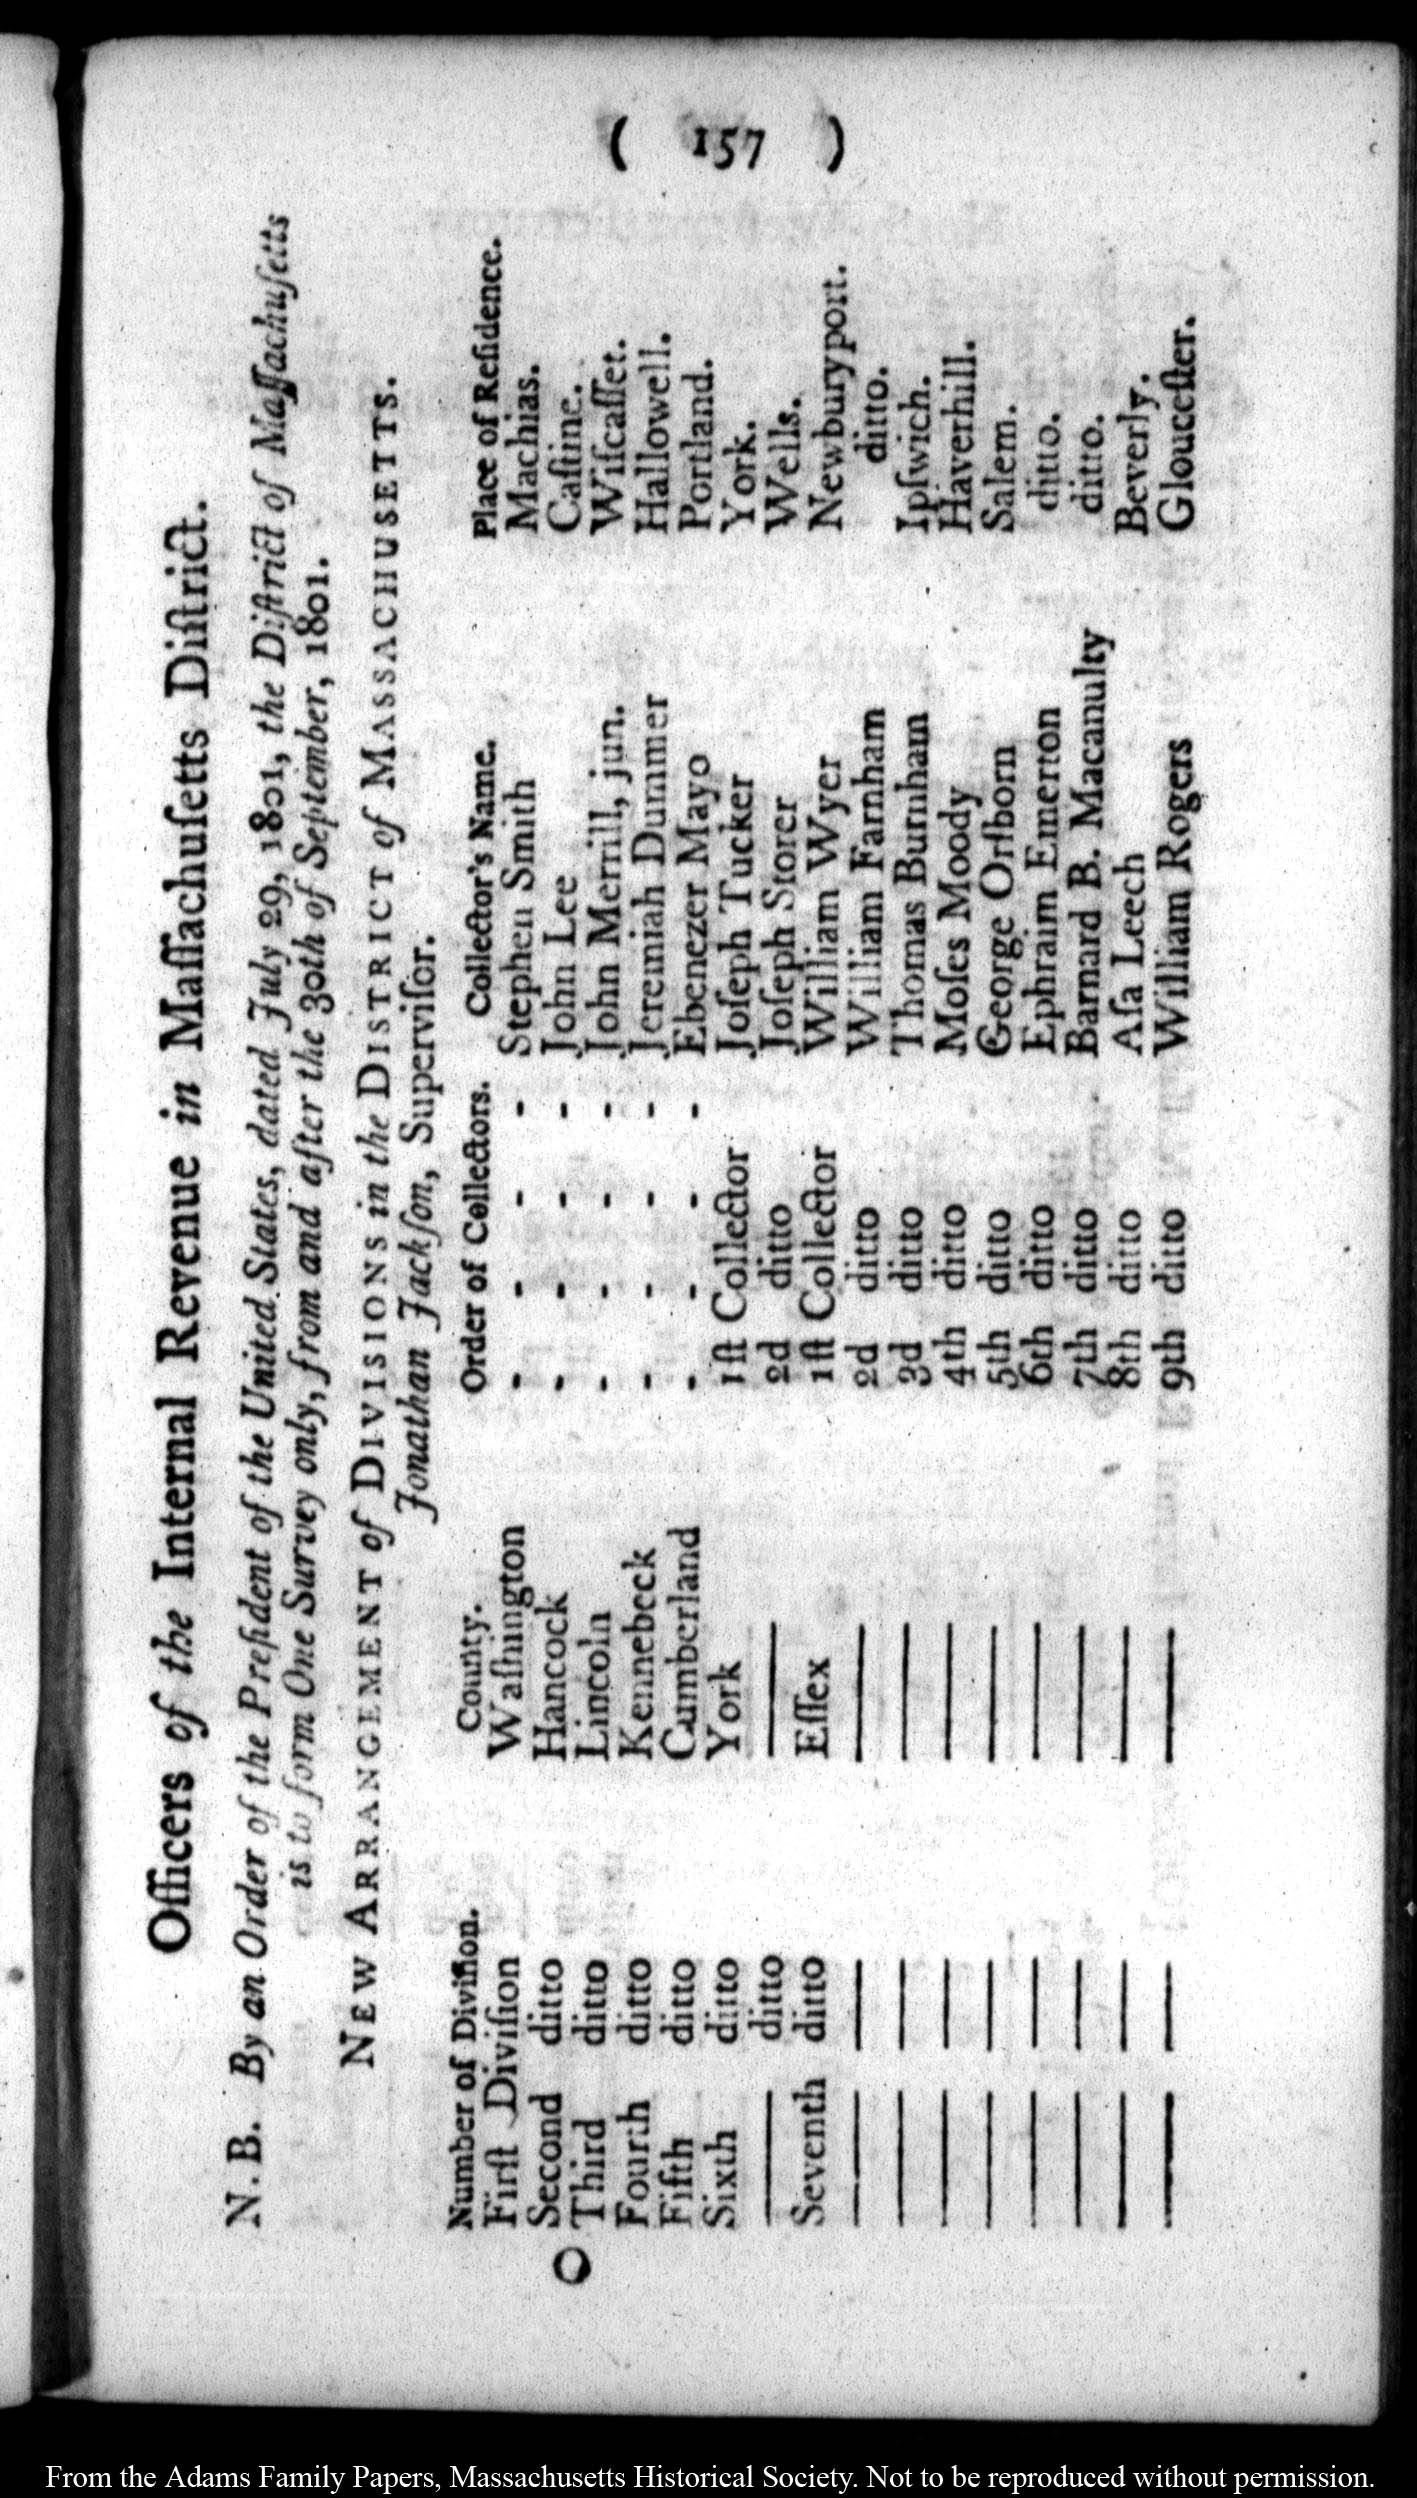 ( 157 )
Officers of the Internal Revenue in Maſſachuſetts Diſtrict.
N. B. By an Order of the Preſident of the United States, dated July 29, 1801, the Diſtrict of Maſſachuſetts
is to form One Survey only, from and after the 30th of September, 1801.
NEW ARRANGEMENT of DIVISIONS in the DISTRICT of MASSACHUSETTS.
Jonathan Jackſon, Superviſor.
Number of Diviſion. County. Order of Collectors. Collector's Name. Place of Reſidence.
Firſt Diviſion Waſhington - - - - Stephen Smith Machias.
Second ditto Hancock - - - - John Lee Caſtine.
Third ditto Lincoln - - - - John Merrill, jun. Wiſcaſſet.
Fourth ditto Kennebeck - - - - Jeremiah Dummer Hallowell.
Fifth ditto Cumberland - - - - Ebenezer Mayo Portland.
Sixth ditto York 1ſt Collector Joſeph Tucker York.
—— ditto —— 2d ditto Joſeph Storer Wells.
Seventh ditto Eſſex 1ſt Collector William Wyer Newburyport.
—— —— —— 2d ditto William Farnham ditto.
—— —— —— 3d ditto Thomas Burnham Ipſwich.
—— —— —— 4th ditto Moſes Moody Haverhill.
—— —— —— 5th ditto George Orſborn Salem.
—— —— —— 6th ditto Ephraim Emerton ditto.
—— —— —— 7th ditto Barnard B. Macanulty ditto.
—— —— —— 8th ditto Aſa Leech Beverly.
—— —— —— 9th ditto William Rogers Glouceſter.
O
From the Adams Family Papers, Massachusetts Historical Society. Not to be reproduced without permission.